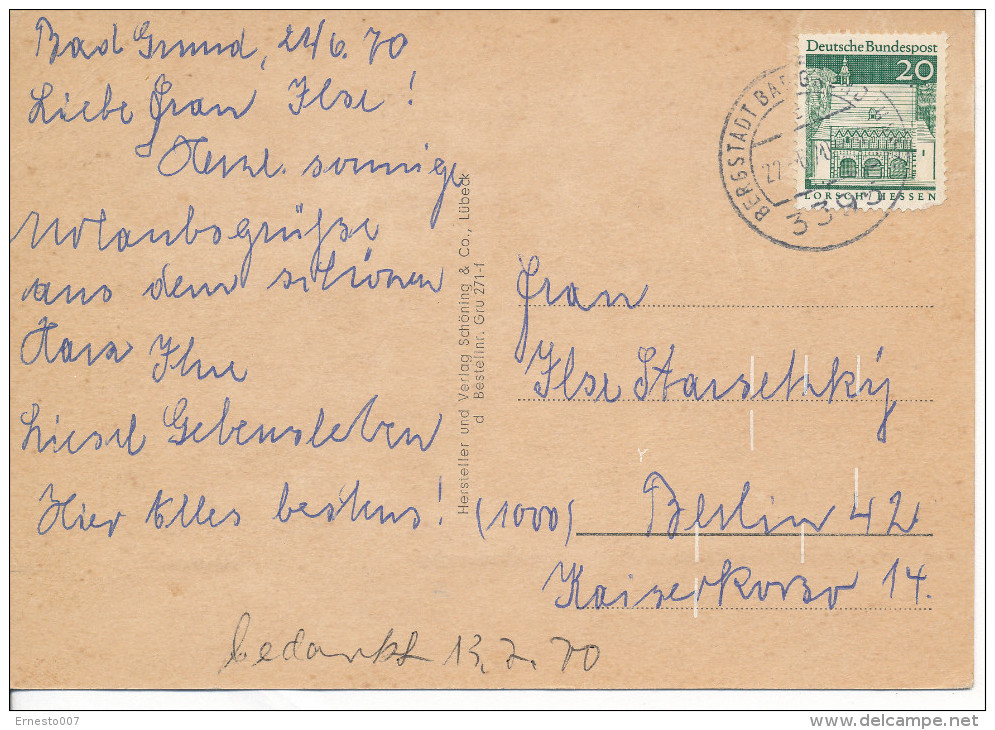 Bad Grund, 21/6. 70
Liebe Frau Ilse!
Herzl. sonnige
Urlaubsgrüße
aus dem schönen
Harz Ihre
Liesel Gebensleben
Hier Alles bestens!
Hersteller und Verlag Schöning & Co., Lübeck
d Bestellnr. Gru 271-f
Deutsche Bundespost
20
LORSCH/HESSEN
BERGSTADT BAD
3395
Frau
Ilse Starsetzky
(1000) Berlin 42
Kaiserkorso 14.
bedankt 13.7.70
Ernesto007
delcampe.net